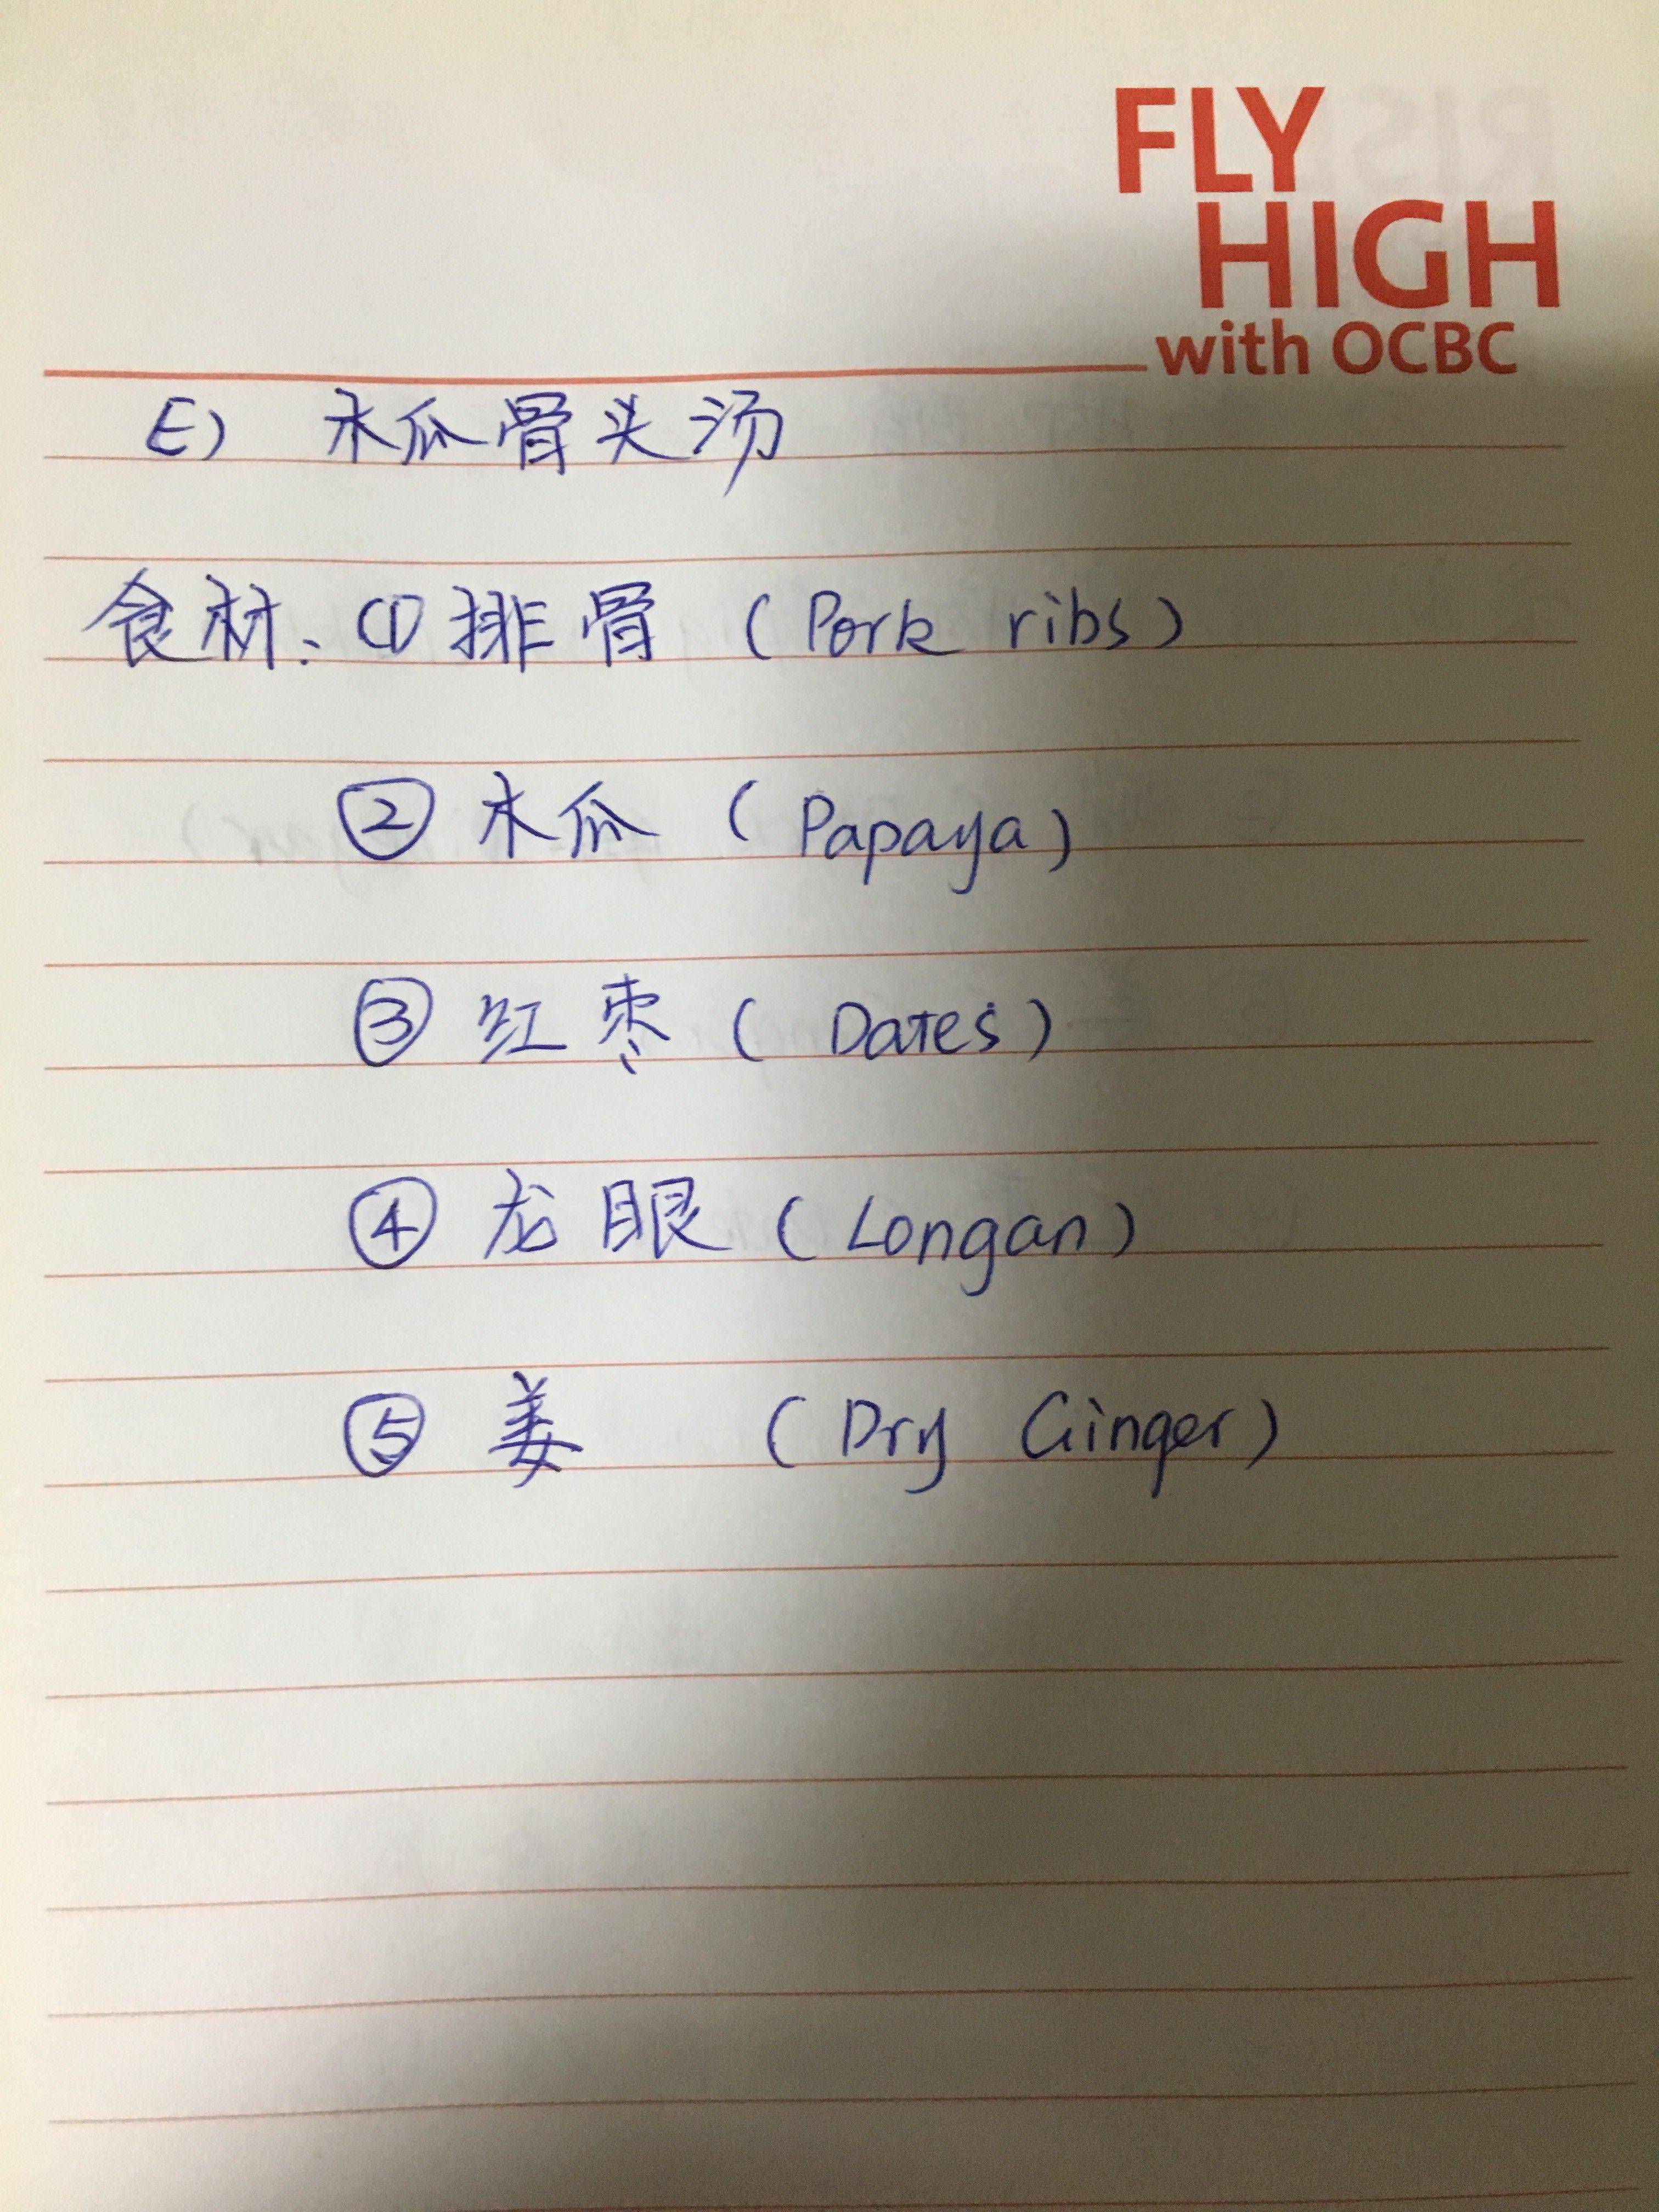 FLY
HIGH
with OCBC
E) 木瓜骨头汤
食材、① 排骨 (Pork ribs)
② 木瓜 (Papaya)
③ 红枣 (Dates)
④ 龙眼 (Longan)
⑤ 姜 (Dry Ginger)